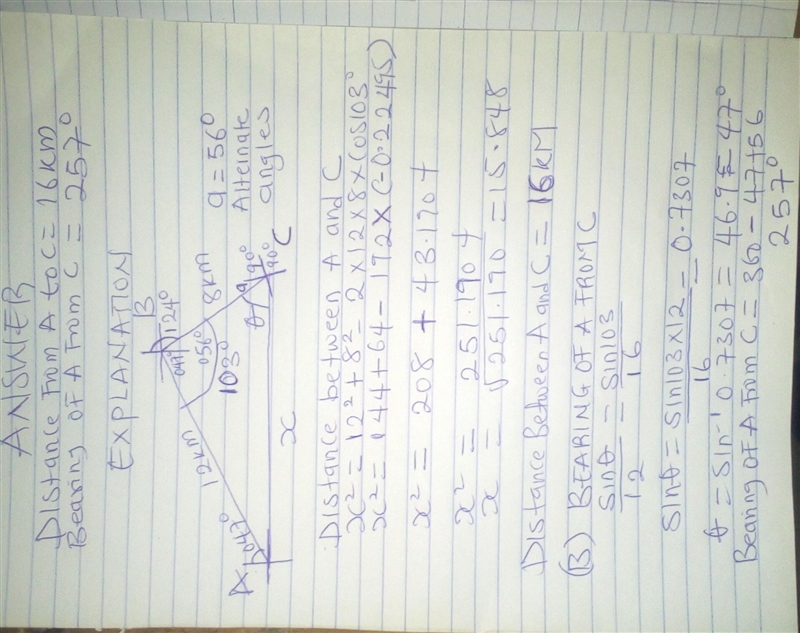 ANSWER
Distance From A to C = 16km
Bearing of A From C = 257°
EXPLANATION
B
047°
124°
12km
056°
8km
103°
a = 56°
Alternate
angles
A
047°
x
θ
a
90°
90°
C
Distance between A and C
x² = 12² + 8² - 2 x 12 x 8 x Cos 103°
x² = 144 + 64 - 192 x (-0.22495)
x² = 208 + 43.1904
x² = 251.1904
x = √251.190 = 15.848
Distance Between A and C = 16KM
(B) BEARING OF A FROM C
Sinθ/12 = Sin103/16
Sinθ = Sin103 x 12/16 = 0.7307
θ = Sin⁻¹ 0.7307 = 46.9 ≅ 47°
Bearing of A From C = 360 - 47+56
257°